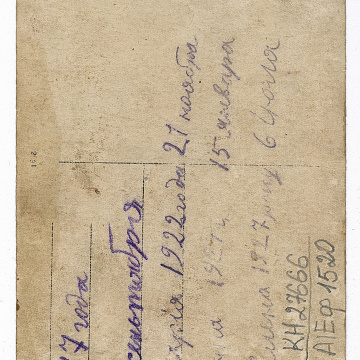 7 года
сентября
1922 года 21 ноября
1927 г. 15 января
1927 году 6 июля
КН 27666
АЕФ 1520